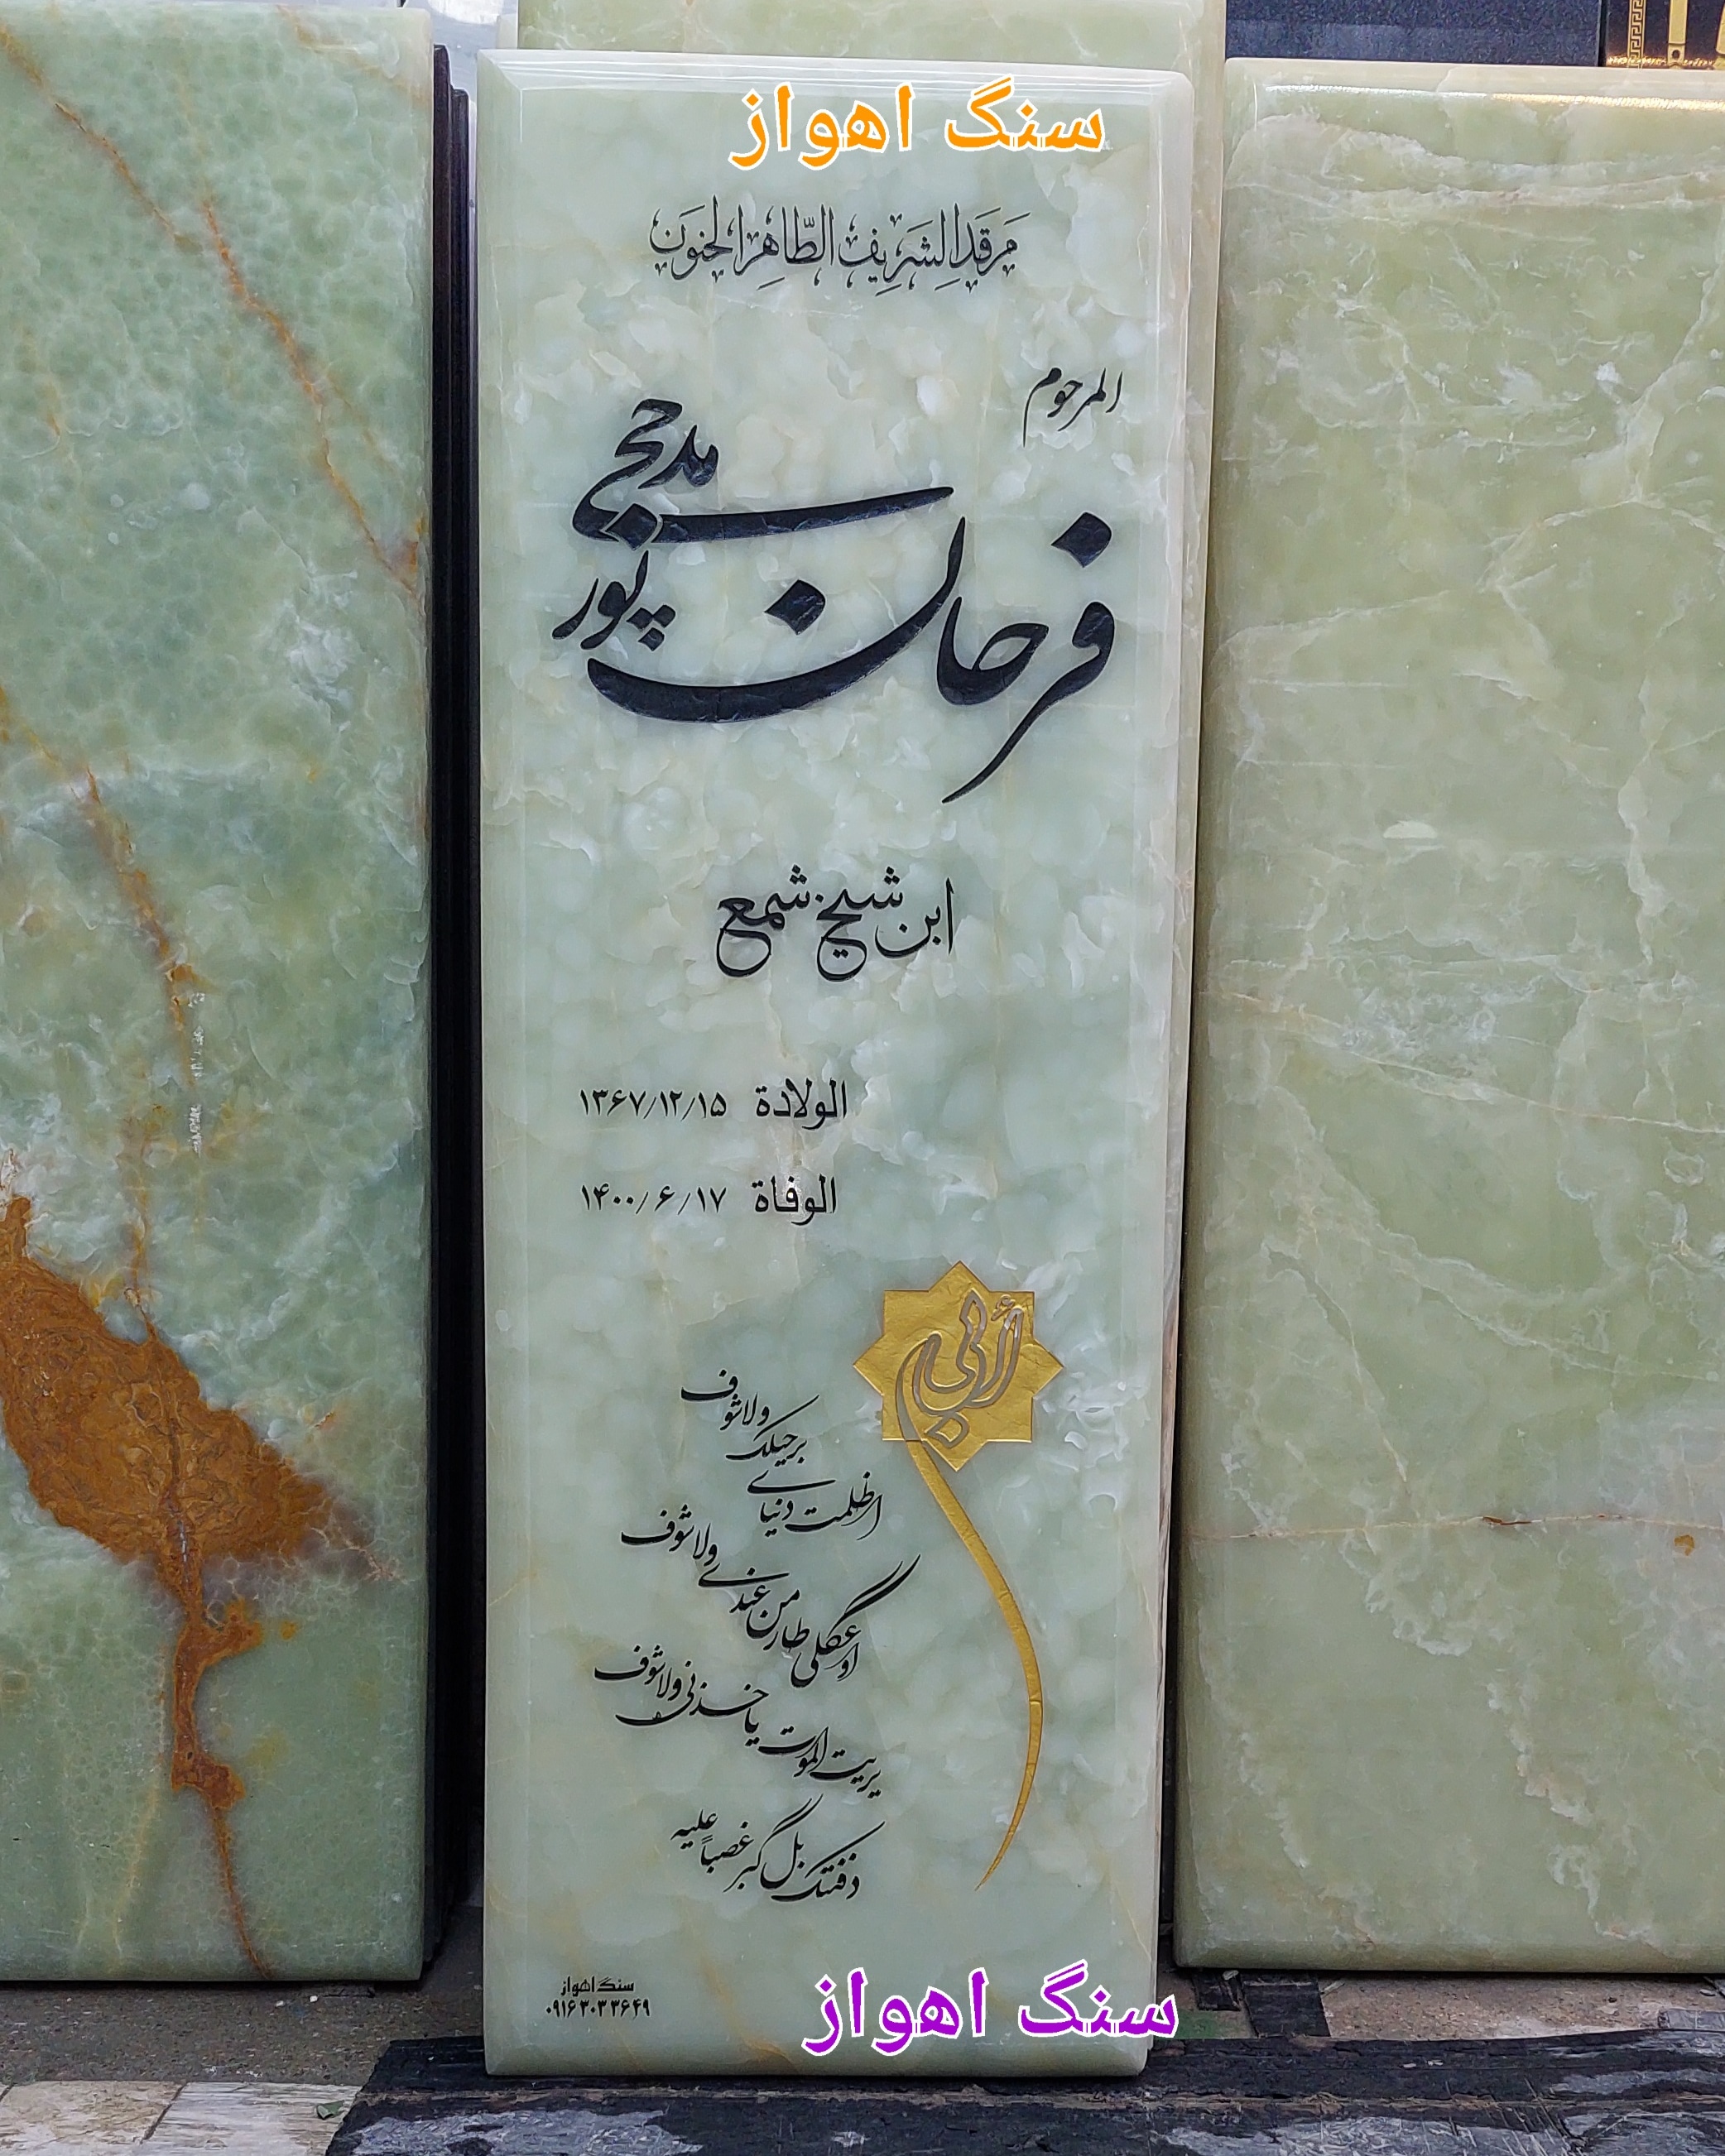 سنگ اهواز
مَرقَدِ الشَرِیفِ الطّاهِرِ الحَنَون
المرحوم
فرحان
مدحجی
پور
ابن شیخ شمع
الولادة ۱۳۶۷/۱۲/۱۵
الوفاة ۱۴۰۰/۶/۱۷
أبي
برحیلک ولاشوف
اظلمت دنیای
ولاشوف
او عگلی طار من عندی
یریت الموت یاخذنی ولاشوف
دفنتک بل گبر غصباً علیه
سنگ اهواز
۰۹۱۶۳۰۳۳۶۴۹
سنگ اهواز